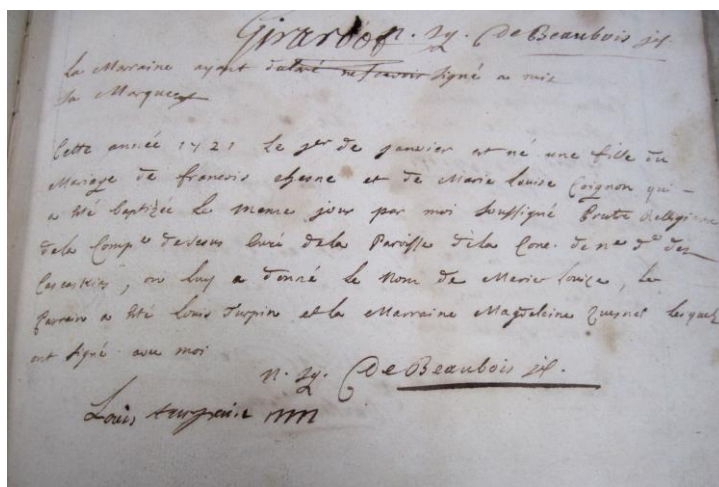 Girardot n. ig. De Beaubois js.
la Marraine ayant declaré ne scavoir signé a mis
sa Marque
Cette année 1721 le 1er de janvier est né une fille du
Mariage de francois chesne et de Marie Louise Coignon qui -
a été baptizée le meme jour par moi soussigné Prete Religieux
de la Compe de Jesus Curé de la Paroisse de la Conc. de ne de des
Cascaskias, on luy a donné le Nom de Marie Louize, le
Parrein a été Louis Turpin et la Marraine Magdeleine Quesnel lesquels
ont signé avec moi
n. ig. De Beaubois js.
Louis turpin